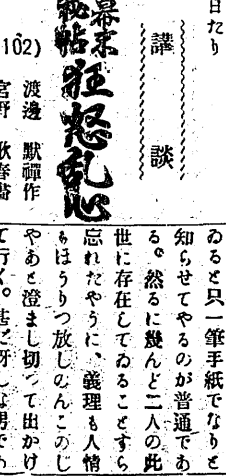 日たり
講談
幕末
秘帖
狂怒乱心
(102)
渡邊 默禪作
宮野
ゐると只一筆手紙でなりと
知らせてやるのが普通であ
る。然るに幾んど二人の此
世に存在してゐることすら
忘れたやうに、義理も人情
もほうりつ放しのんこのじ
やあと澄まし切つて出かけ
て行く。